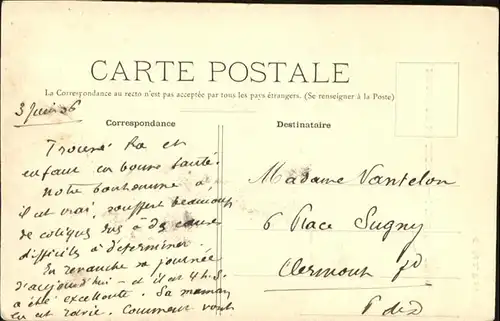 CARTE POSTALE
La Correspondance au recto n'est pas acceptée par tous les pays étrangers. (Se renseigner à la Poste)
3 Juin 06
Correspondance
Destinataire
Trouvé et
enfant en bonne santé.
Notre bonhomme a,
il est vrai, souffert beaucoup
de coliques dus à des causes
difficiles à déterminer.
En revanche sa journée
d'aujourd'hui - et il est 4 h. S.
a été excellente. Sa maman
en est ravie. Comment vont
Madame Vantelon
6 Place Sugny
Clermont fd
P de D